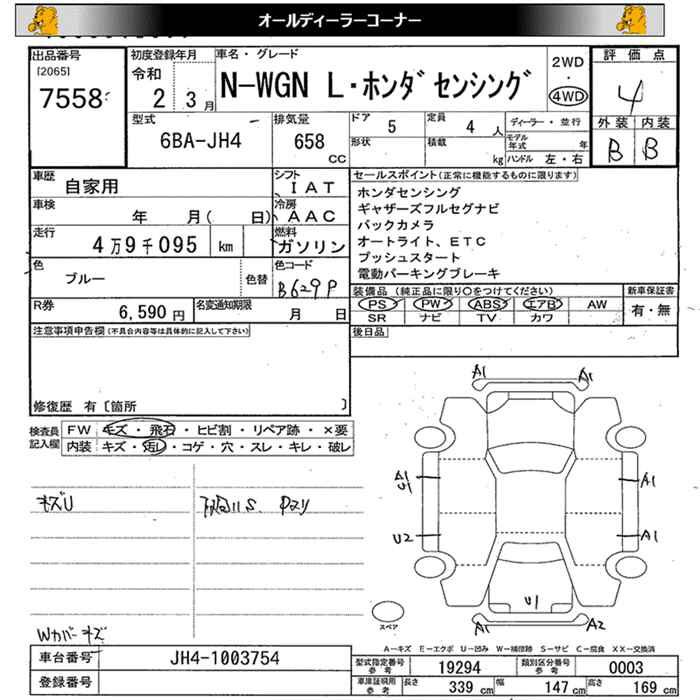 オールディーラーコーナー
出品番号
[2065]
7558
初度登録年月
令和
2 3月
車名・グレード
N-WGN L・ホンダセンシング
2WD
・
4WD
評価点
4
外装 内装
B B
型式
6BA-JH4
排気量
658
cc
ドア
5
形状
定員
4 人
積載
kg
ディーラー・並行
モデル年式 年
ハンドル 左・右
車歴
自家用
シフト
IAT
車検
年 月( 日)
冷房
AAC
走行
4万9千095 km
燃料
ガソリン
色
ブルー
色替
色コード
B629P
R券
6,590 円
名変通知期限
月 日
セールスポイント(正常に機能するものに限ります)
ホンダセンシング
ギャザーズフルセグナビ
バックカメラ
オートライト、ETC
プッシュスタート
電動パーキングブレーキ
装備品(純正品に限り○をつけてください)
PS PW ABS エアB AW
SR ナビ TV カワ
新車保証書
有・無
後日品
注意事項申告欄(不具合内容等は具体的に記入して下さい)
修復歴 有〔箇所 〕
検査員記入欄
FW キズ・飛石・ヒビ割・リペア跡・×要
内装 キズ・汚レ・コゲ・穴・スレ・キレ・破レ
キズU
Wカバーキズ
A1
A1
A1
U1
A1
U2
A1
U1
A1
A2
スペア
A-キズ E-エクボ U-凹み W-補修跡 S-サビ C-腐食 XX-交換済
車台番号
JH4-1003754
登録番号
型式指定番号 参考
19294
類別区分番号 参考
0003
車庫証明用 参考
長さ 339 cm
幅 147 cm
高さ 169 cm